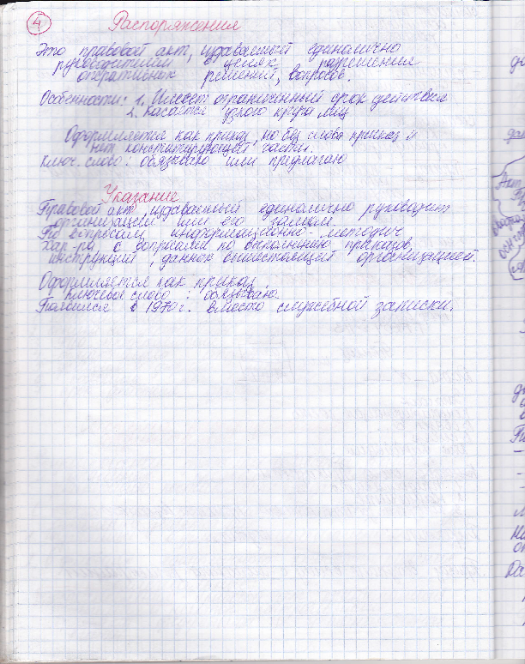 4
Распоряжения
Это правовой акт, издаваемый единолично
руководителем в целях разрешения
оперативных решений, вопросов.
Особенности: 1. Имеет ограниченный срок действия
2. Касается узкого круга лиц
Оформляется как приказ, но без слова приказ и
нет констатирующей части.
Ключ. слово: обязываю или предлагаю
Указание
Правовой акт, издаваемый единолично руководит.
организацией или его замом
По вопросам информационно-методич.
хар-ра с вопросами по выполнению приказов,
инструкций, данных вышестоящей организацией.
Оформляется как приказ
ключевые слово: обязываю.
Появился в 1970 г. вместо служебной записки.